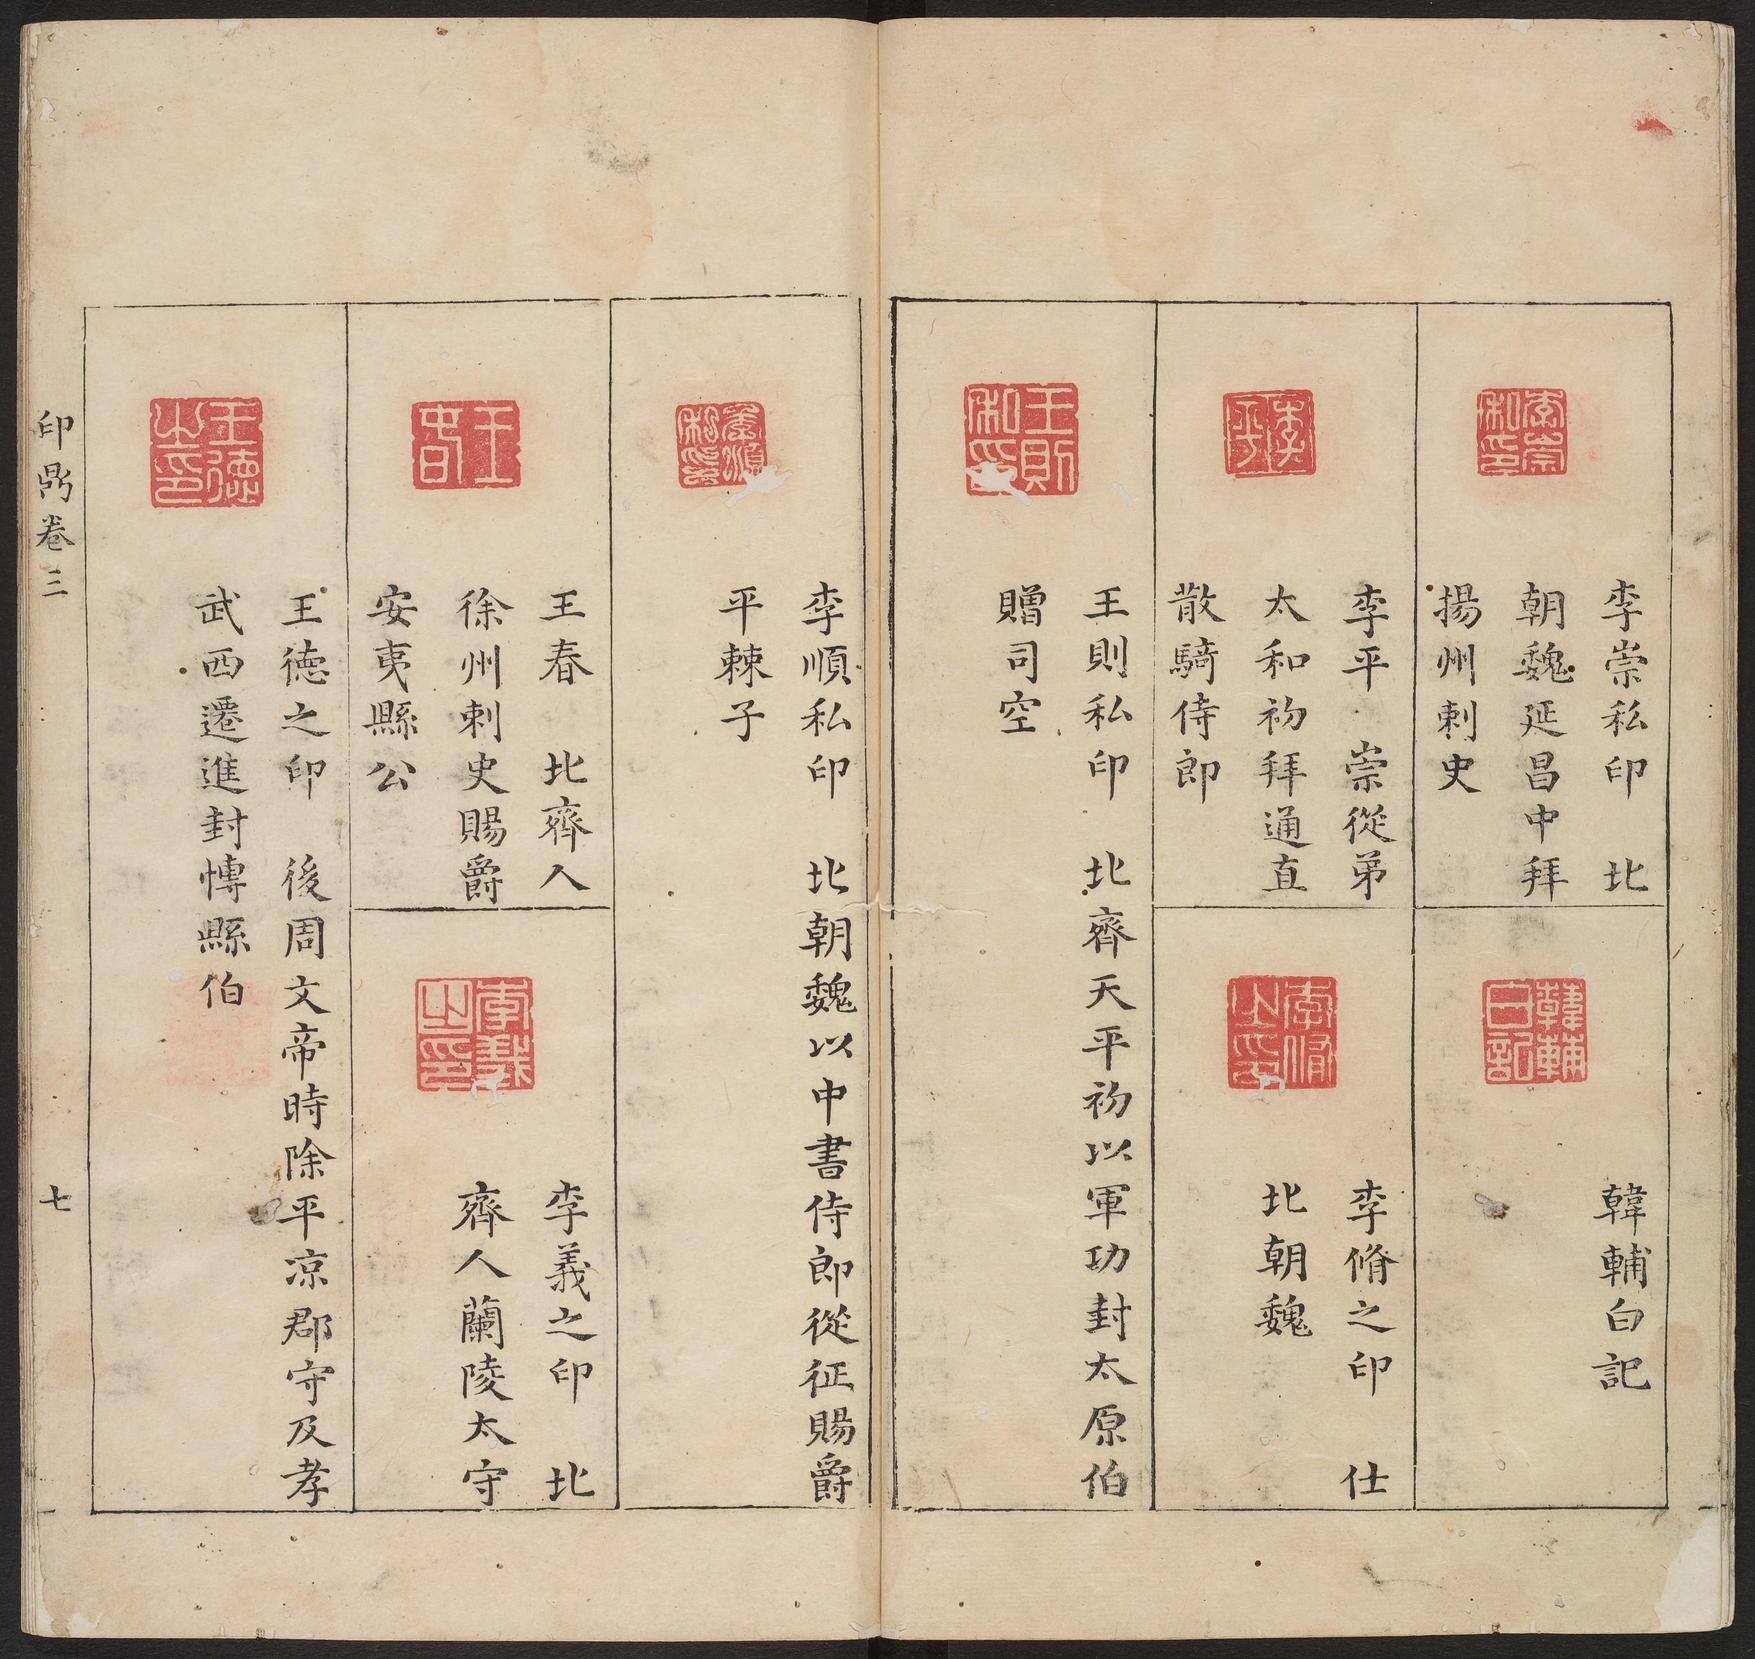 李崇私印　北
朝魏延昌中拜
揚州刺史
韓輔白記
李平　崇從弟
太和初拜通直
散騎侍郎
李脩之印　仕
北朝魏
王則私印　北齊天平初以軍功封太原伯
贈司空
李順私印　北朝魏以中書侍郎從征賜爵
平棘子
王春　北齊人
徐州刺史賜爵
安夷縣公
李義之印　北
齊人蘭陵太守
王德之印　後周文帝時除平凉郡守及孝
武西遷進封博縣伯
印鼎卷三
七